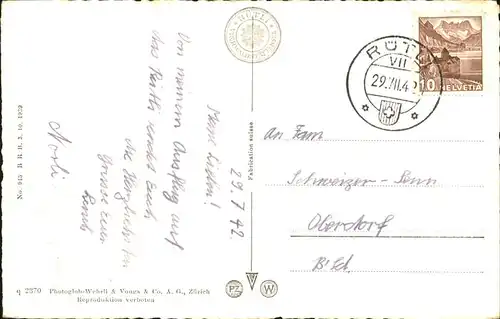 RÜTLI
29.7.42
Meine Lieben!
Von meinem Ausflug auf
das Rütli sendet Euch
die herzlichsten
Grüsse
Noli
RÜTLI
VII
29.VII.42
10
HELVETIA
An Fam.
Schweizer-Senn
Oberdorf
B'ld.
Fabrication suisse
No. 945 B R B 3. 10. 1932
q 2370 Photoglob-Wehrli & Vouga & Co. A. G., Zürich
Reproduktion verboten
PZ W